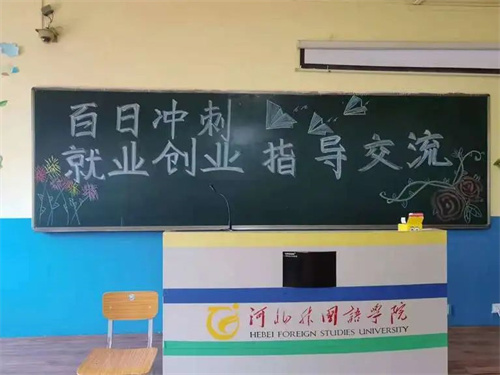 百日冲刺
就业创业 指导交流
河北外国语学院
HEBEI FOREIGN STUDIES UNIVERSITY